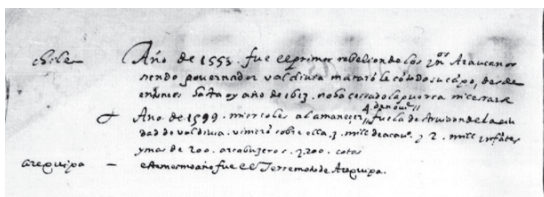 chile Año de 1553. fue el primer rebelion de los yn.os Araucanos
siendo governador valdivia
entonces hasta oy año de 1613. no ha cerrado la puerta ni cerrara
Año de 1599. miercoles al amanecer 24 de nov.e fue la destruicion de la ciu
dad de valdivia. vinieron sobre ella. 3. mill de acau.o y 2. mill infãtes
y mas de 200. arcabujeros. y 200. cotas
arequipa — este mesmo año fue el Terremoto de Arequipa.